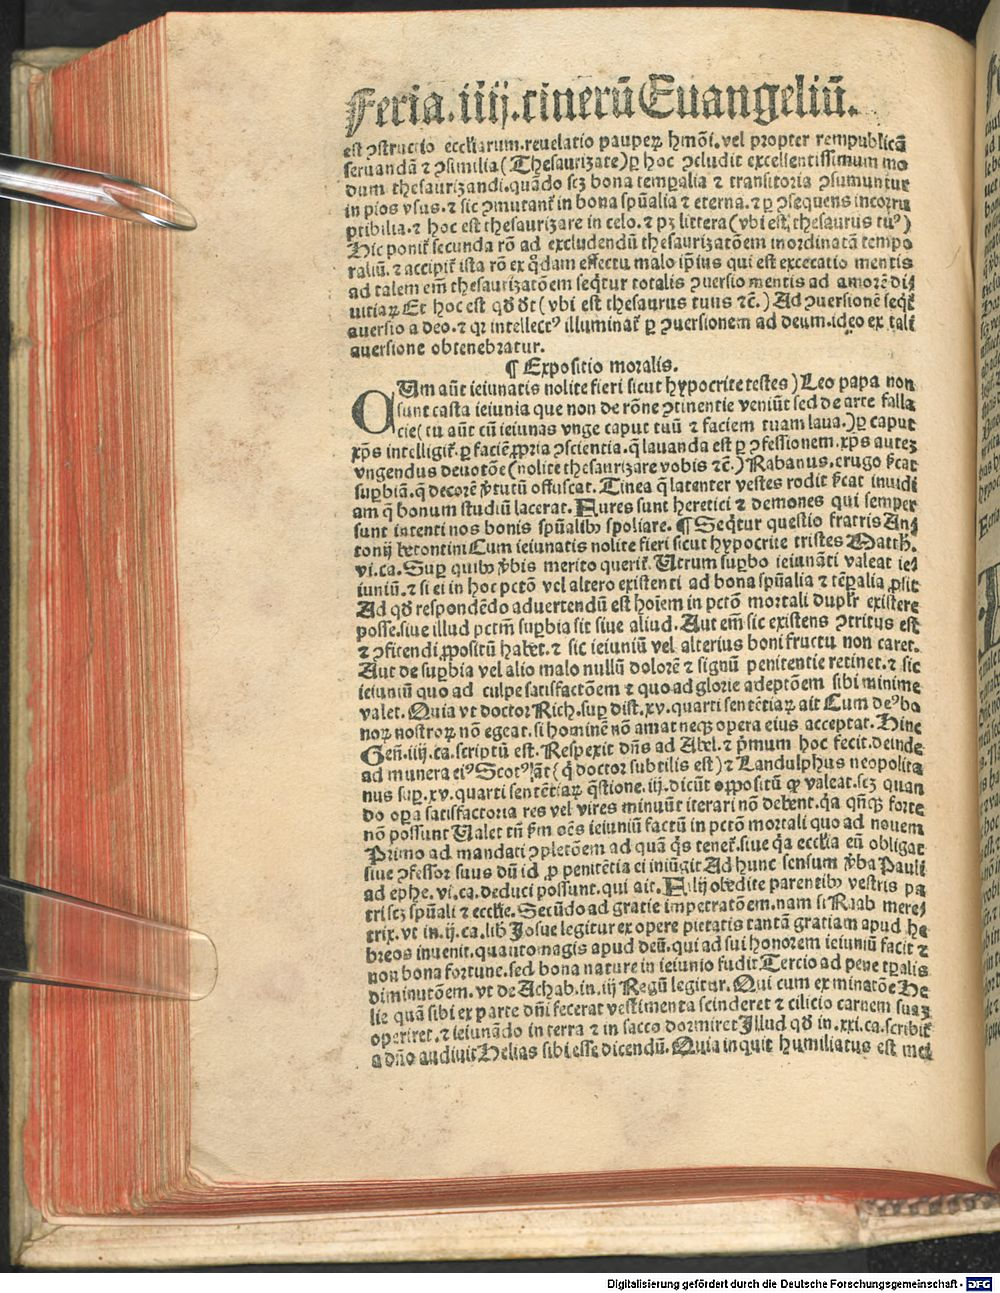 Feria.iiij.cinerū Euangeliū.
est ꝯstructio eccliarum.reuelatio pauperꝝ hmōi.vel propter rempublicā
seruandā ⁊ ꝯsimilia(Thesaurizate)ꝑ hoc ꝯcludit excellentissimum mo
dum thesaurizandi.quādo scꝫ bona temꝑalia ⁊ transitoria ꝯsumuntur
in pios vsus.⁊ sic ꝯmutant᷑ in bona spūalia ⁊ eterna.⁊ ꝑ ꝯsequens incorru
ptibilia.⁊ hoc est thesaurizare in celo.⁊ pꝫ littera(vbi est thesaurus tuꝰ)
Hic ponit᷑ secunda rō ad excludendū thesaurizatōem inordinatā tempo
raliū.⁊ accipit᷑ ista rō ex q̇dam effectu malo ip̄ius qui est excecatio mentis
ad talem em̄ thesaurizatōem seq̇tur totalis ꝯuersio mentis ad amorē di/
uitiaꝝ Et hoc est qð ðt(vbi est thesaurus tuus ⁊c̄.)Ad ꝯuersionē seq̇t᷑
auersio a deo.⁊ qꝛ intellectꝰ illuminat᷑ ꝑ ꝯuersionem ad deum.ideo ex tali
auersione obtenebratur.
¶ Expositio moralis.
CUm aūt ieiunatis nolite fieri sicut hypocrite testes)Leo papa non
sunt casta ieiunia que non de rōne ꝯtinentie veniūt sed de arte falla
cie(tu aūt cū ieiunas vnge caput tuū ⁊ faciem tuam laua.)ꝑ caput
xp̄s intelligit᷑.ꝑ faciē ꝓpria ꝯscientia.q̄ lauanda est ꝑ ꝯfessionem.xp̄s autez
vngendus deuotōe(nolite thesaurizare vobis ⁊c̄.)Rabanus.erugo s̄cat
suꝑbiā.q̄ decorē v̄tutū offuscat.Tinea q̄ latenter vestes rodit s̄cat inuidi
am q̄ bonum studiū lacerat.Fures sunt heretici ⁊ demones qui semper
sunt intenti nos bonis spūalibꝫ spoliare. ¶ Seq̇tur questio fratris An/
tonij betontini Cum ieiunatis nolite fieri sicut hypocrite tristes Matth.
vi.ca.Suꝑ quibꝫ v̄bis merito querit᷑.Utrum suꝑbo ieiunāti valeat ie/
iuniū.⁊ si ei in hoc pctō vel altero existenti ad bona spūalia ⁊ tēꝑalia ꝓsit
Ad qð respondēdo aduertendū est hoīem in pctō mortali duplr̄ existere
posse.siue illud pctm̄ suꝑbia sit siue aliud.Aut em̄ sic existens ꝯtritus est
⁊ ꝯfitendi ꝓpositū habet.⁊ sic ieiuniū vel alterius boni fructu non caret.
Aut de suꝑbia vel alio malo nullū dolorē ⁊ signū penitentie retinet.⁊ sic
ieiuniū quo ad culpe satisfactōem ⁊ quo ad glorie adeptōem sibi minime
valet.Quia vt doctor Rich.suꝑ dist.xv.quarti sentētiaꝝ ait Cum deꝰ bo
noꝝ nostroꝝ nō egeat.si hominē nō amat neqꝫ opera eius acceptat.Hinc
Geñ.iiij.ca.scriptū est.Respexit dn̄s ad Abel.⁊ p̄mum hoc fecit.deinde
ad munera eiꝰ Scotꝰ āt(q̇ doctor subtilis est)⁊ Landulphus neopolita
nus suꝑ.xv.quarti sentētiaꝝ q̄stione.iij.dicūt ꝓpositū ꝙ valeat.scꝫ quan
do oꝑa satisfactoria res vel vires minuūt iterari nō debent.q̇a qn̄qꝫ forte
nō possunt Ualet tn̄ s̄m oēs ieiuniū factū in pctō mortali quo ad nouem
Primo ad mandati ꝯpletōem ad quā q̇s tenet᷑.siue q̇a ecclīa eū obligat
siue ꝯfessor suus dū id ꝓ penitētia ei iniūgit Ad hunc sensum v̄ba Pauli
ad ephe.vi.ca.deduci possunt.qui ait.Filij obedite parentibꝫ vestris pa
tri scꝫ spūali ⁊ ecclīe.Secūdo ad gratie impetratōem.nam si Raab mere/
trix.vt in.ij.ca.lib Josue legitur ex opere pietatis tantā gratiam apud he
breos inuenit.quanto magis apud deū.qui ad sui honorem ieiuniū facit ⁊
non bona fortune.sed bona nature in ieiunio fudit Tercio ad pene tꝑalis
diminutōem.vt de Achab.in.iij Regū legitur.Qui cum ex minatōe He
lie quā sibi ex parte dn̄i fecerat vestimenta scinderet ⁊ cilicio carnem suaꝫ
operiret.⁊ ieiunādo in terra ⁊ in sacco dormiret Illud qð in.xxi.ca.scribit᷑
a dn̄o audiuit Helias sibi esse dicendū.Quia inquit humiliatus est mei
Digitalisierung gefördert durch die Deutsche Forschungsgemeinschaft - DFG